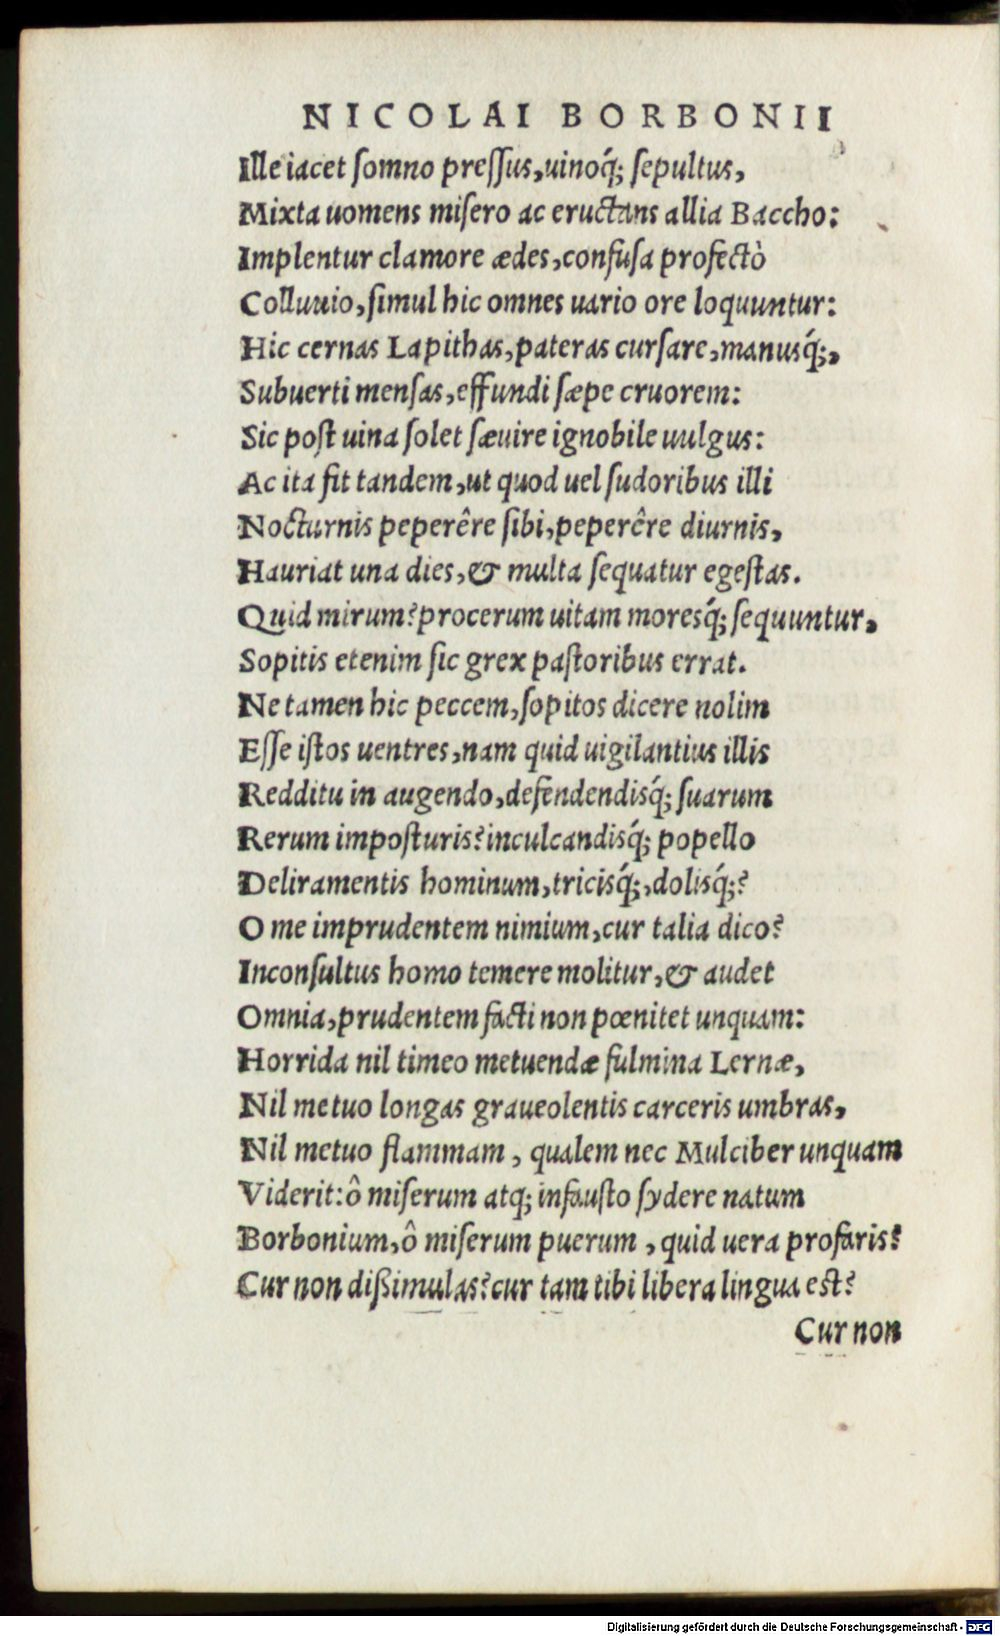 NICOLAI BORBONII
Ille iacet ſomno preſſus, uinoq́; ſepultus,
Mixta uomens miſero ac eructans allia Baccho:
Implentur clamore ædes, confuſa profectò
Colluuio, ſimul hic omnes uario ore loquuntur:
Hic cernas Lapithas, pateras curſare, manusq́;,
Subuerti menſas, effundi ſæpe cruorem:
Sic poſt uina ſolet ſæuire ignobile uulgus:
Ac ita fit tandem, ut quod uel ſudoribus illi
Nocturnis peperêre ſibi, peperêre diurnis,
Hauriat una dies, & multa ſequatur egeſtas.
Quid mirum? procerum uitam moresq́; ſequuntur,
Sopitis etenim ſic grex paſtoribus errat.
Ne tamen hic peccem, ſopitos dicere nolim
Eſſe iſtos uentres, nam quid uigilantius illis
Redditu in augendo, defendendisq́; ſuarum
Rerum impoſturis? inculcandisq́; popello
Deliramentis hominum, tricisq́;, dolisq́;?
O me imprudentem nimium, cur talia dico?
Inconſultus homo temere molitur, & audet
Omnia, prudentem facti non pœnitet unquam:
Horrida nil timeo metuendæ fulmina Lernæ,
Nil metuo longas graueolentis carceris umbras,
Nil metuo flammam, qualem nec Mulciber unquam
Viderit: ô miſerum atq; infauſto ſydere natum
Borbonium, ô miſerum puerum, quid uera profaris?
Cur non dißimulas? cur tam tibi libera lingua eſt?
Cur non
Digitalisierung gefördert durch die Deutsche Forschungsgemeinschaft - DFG